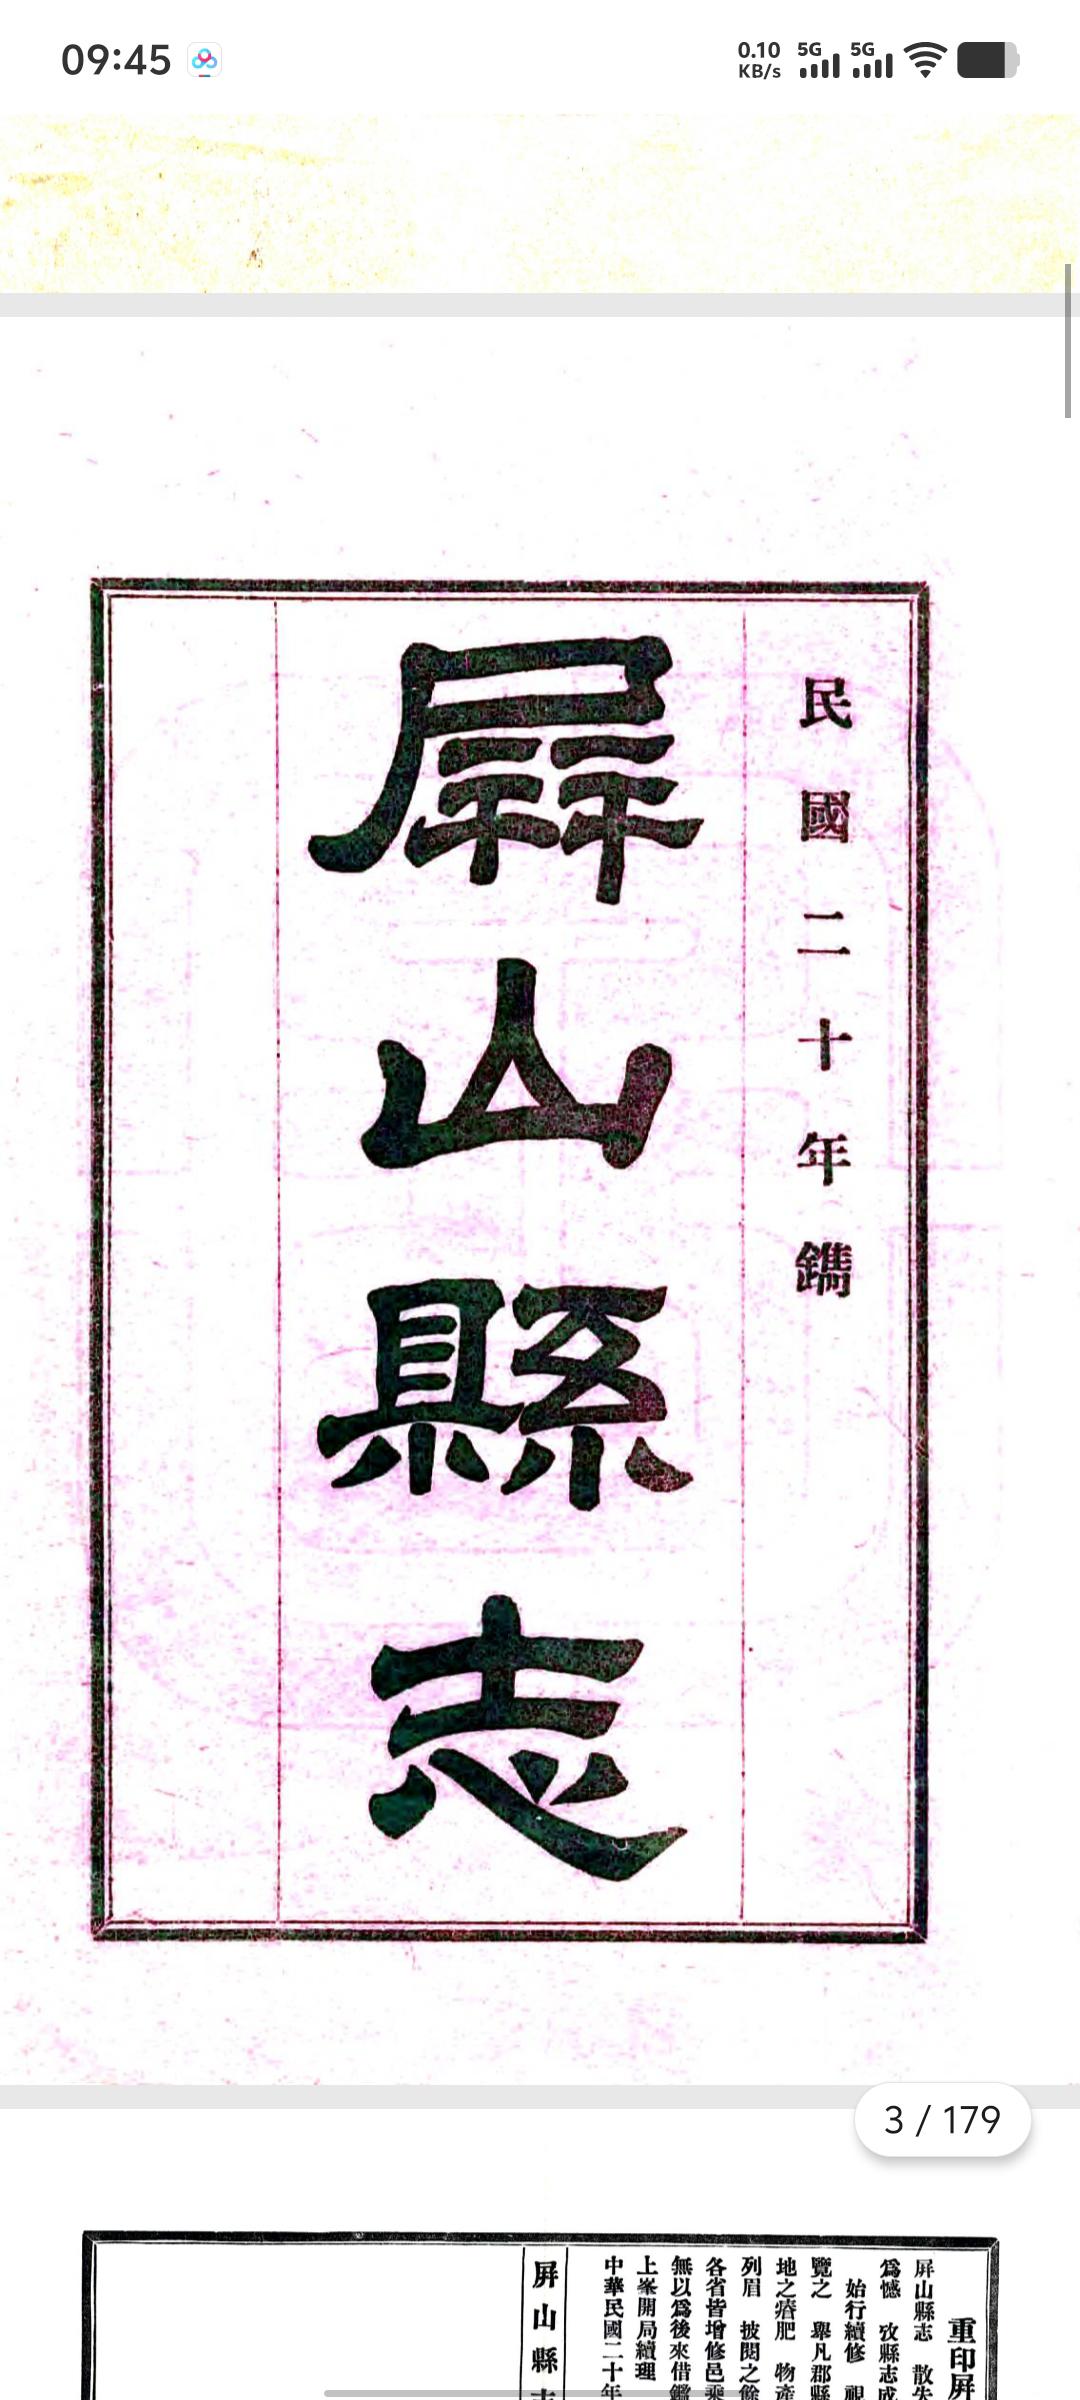 09:45
0.10 KB/s
5G
5G
民國二十年鐫
屏山縣志
3 / 179
重印屏
屏山縣志 散失
爲憾 攷縣志成
始行續修 視
覽之 舉凡郡縣
地之瘠肥 物產
列眉 披閱之餘
各省皆增修邑乘
無以爲後來借鑑
上峯開局續理
中華民國二十年
屏山縣志